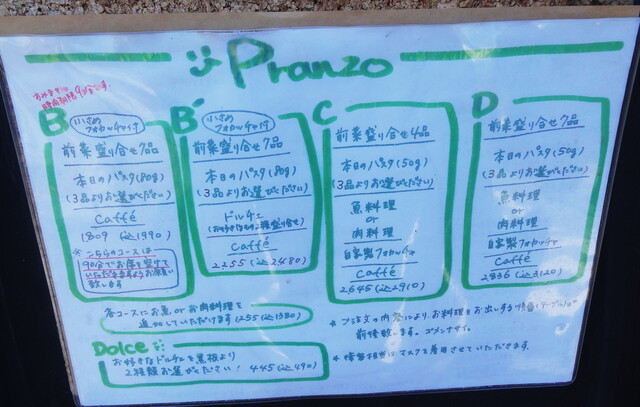 Pranzo
お食事の
時間制限90分です。
B
小さめ
フォカッチャ付
前菜盛り合せ7品
本日のパスタ(80g)
(3品よりお選びください)
Caffé
1809 (込1990)
※ こちらのコースは
90分でお席を空けて
いただきますようお願い
致します
B´
小さめ
フォカッチャ付
前菜盛り合せ7品
本日のパスタ(80g)
(3品よりお選びください)
ドルチェ
Caffé
2255 (込2480)
C
前菜盛り合せ4品
本日のパスタ(50g)
(3品よりお選びください)
魚料理
or
肉料理
自家製フォカッチャ
Caffé
2645 (込2910)
D
前菜盛り合せ7品
本日のパスタ(50g)
(3品よりお選びください)
魚料理
or
肉料理
自家製フォカッチャ
Caffé
2836 (込3120)
各コースにお魚 or お肉料理を
追加していただけます 1255 (込1380)
Dolce
お好きなドルチェを黒板より
2種類お選びください! 445 (込490)
* ご注文の内容により、お料理をお出しする順番(テーブル)が
前後致します。ゴメンナサイ。
* 接客担当はマスクを着用させていただきます。